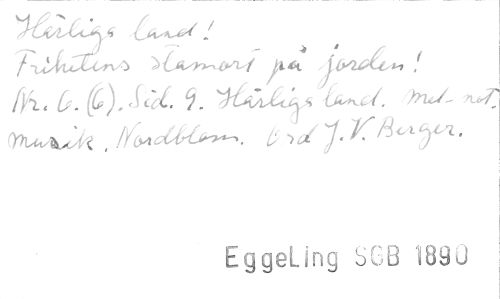 Härliga land!
Frihetens stamort på jorden!
Nr. 6. (6). Sid. 9. Härliga land. Mel-not.
musik. Nordblom. Ord J. V. Berger.
EggeLing SGB 1890